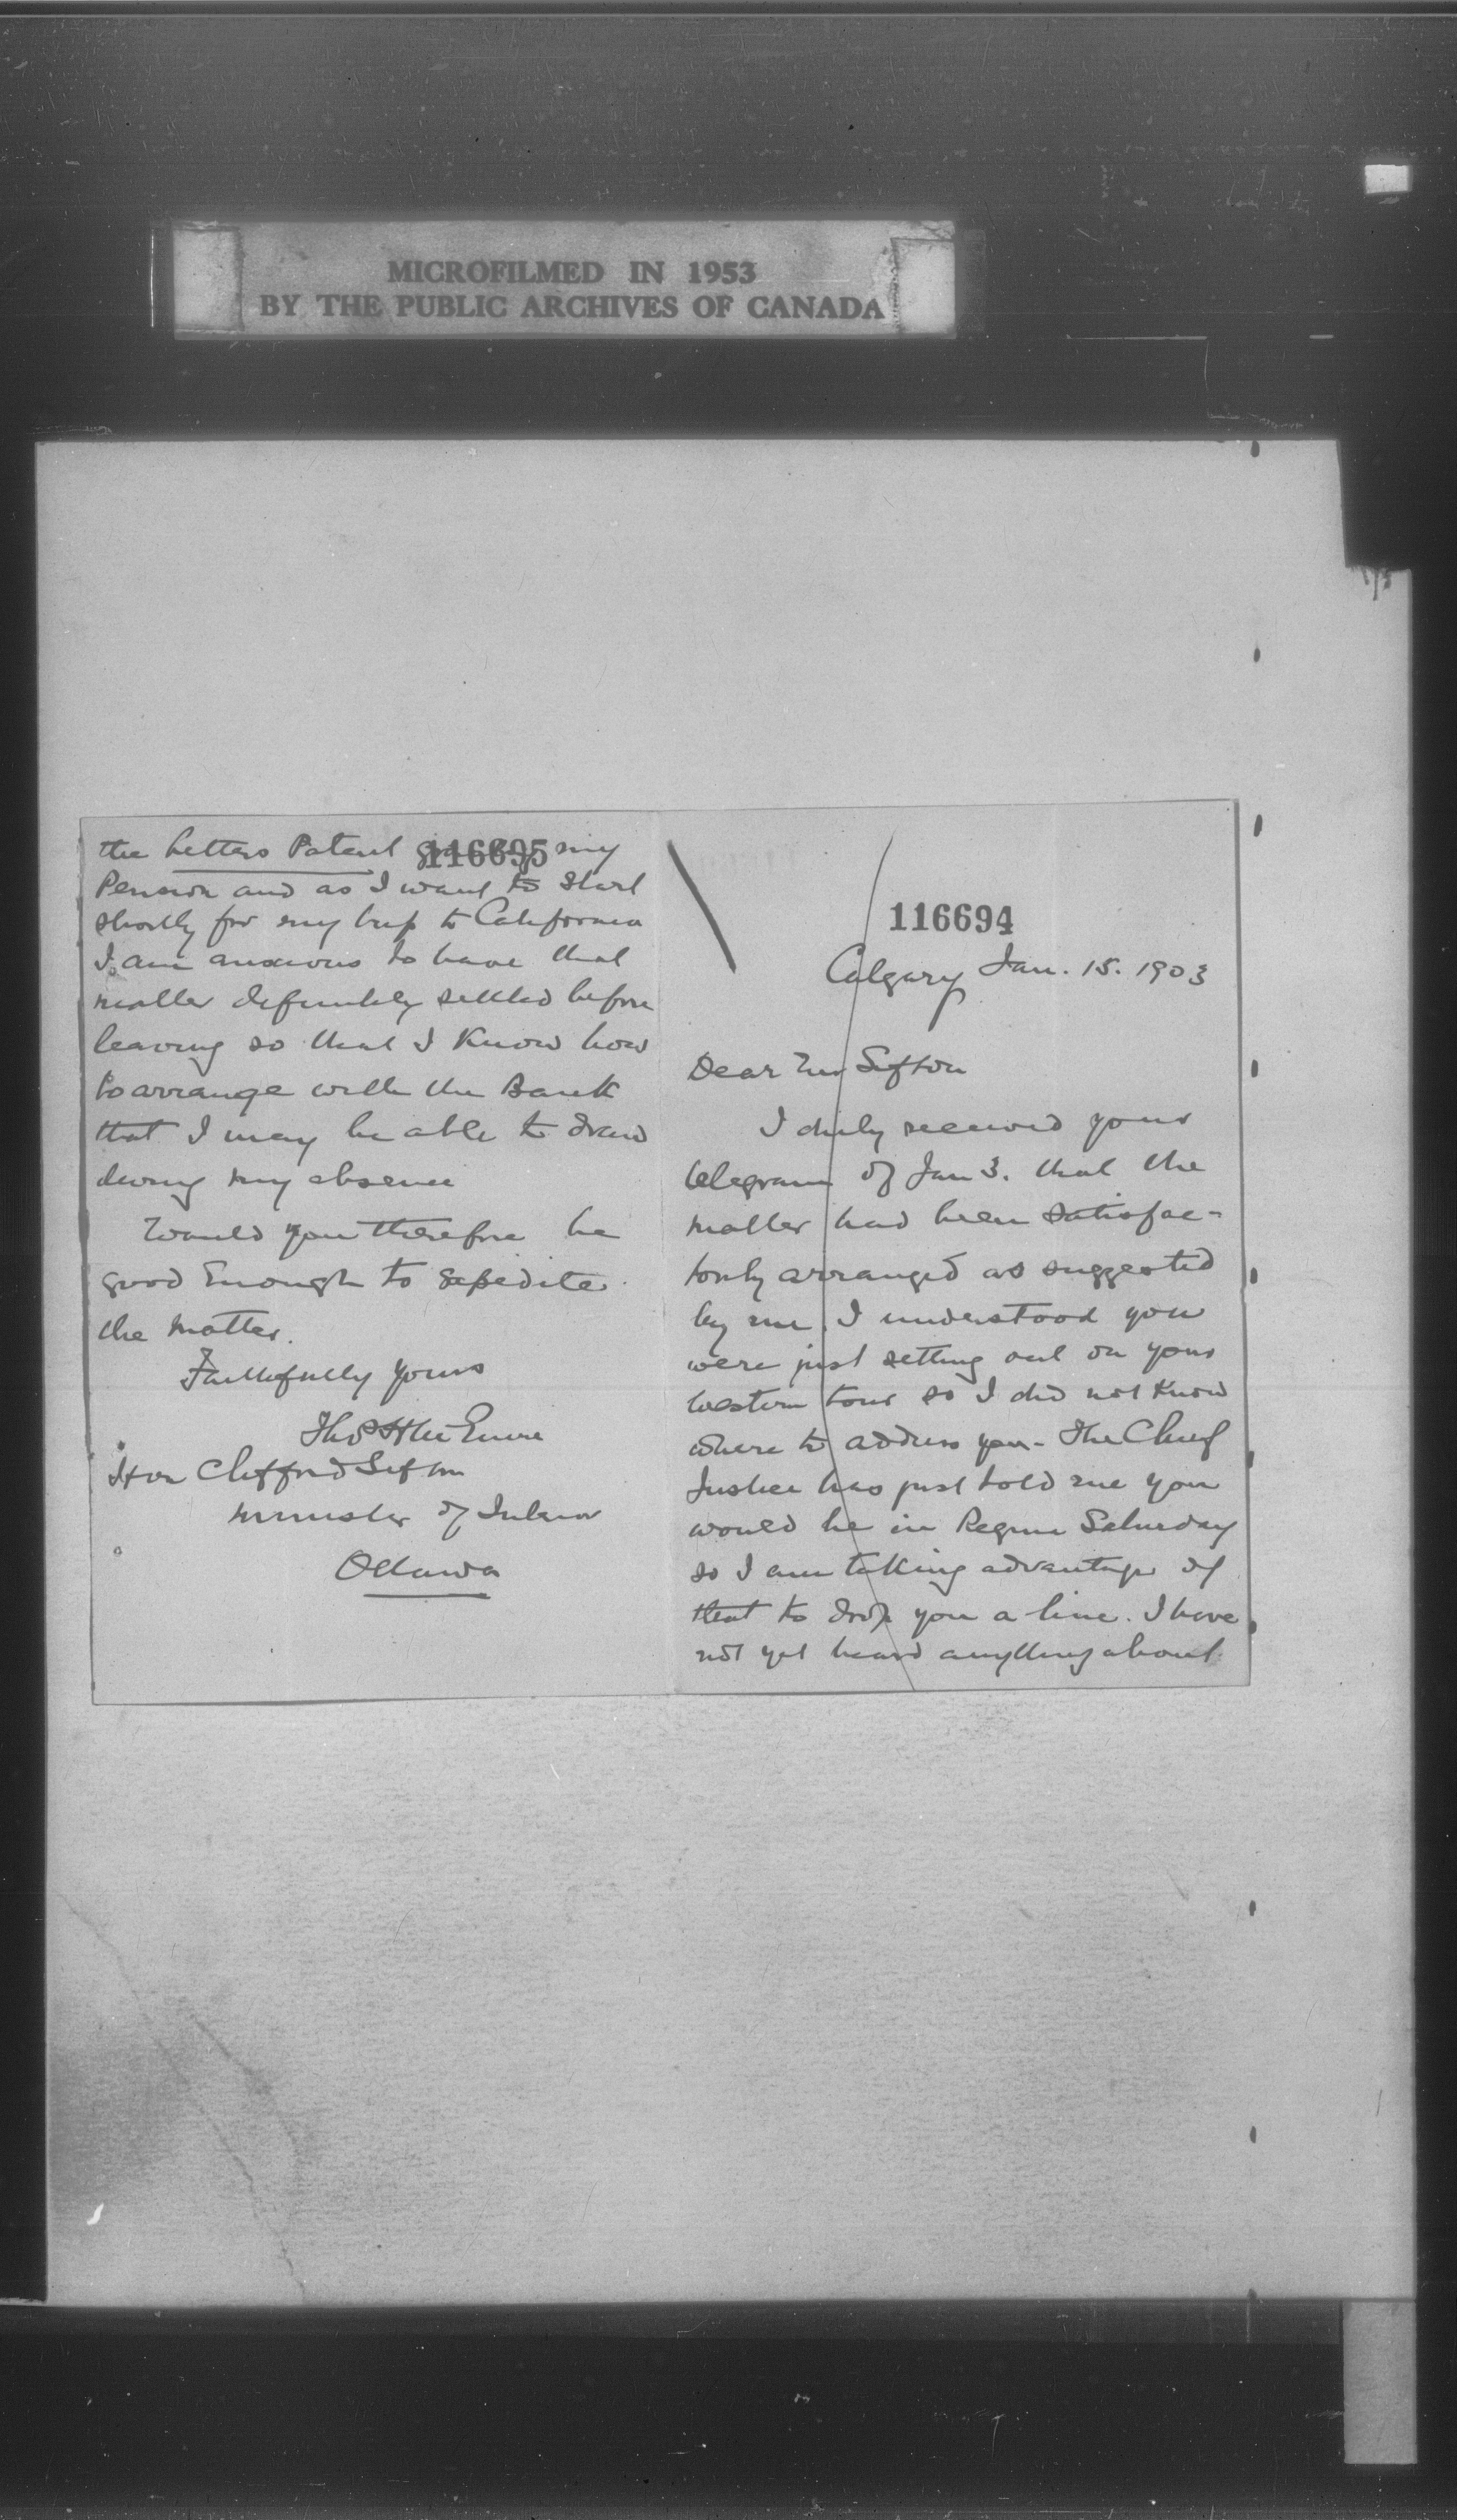 MICROFILMED IN 1953
BY THE PUBLIC ARCHIVES OF CANADA
116694
Calgary Jan. 15. 1903
Dear Mr Sifton
I duly received your
telegram of Jan 3. that the
matter had been satisfac-
torily arranged as suggested
by me. I understood you
were just setting out on your
Western tour so I did not know
where to address you - The Chief
Justice has just told me you
would be in Regina Saturday
so I am taking advantage of
that to drop you a line. I have
not yet heard anything about
116695
the Letters Patent my
Pension and as I want to start
shortly for my trip to California
I am anxious to have that
matter definitely settled before
leaving so that I know how
to arrange with the Bank
that I may be able to draw
during my absence
Would you therefore be
good enough to expedite
the matter.
Faithfully yours
Hon Clifford Sifton
Minister of Interior
Ottawa